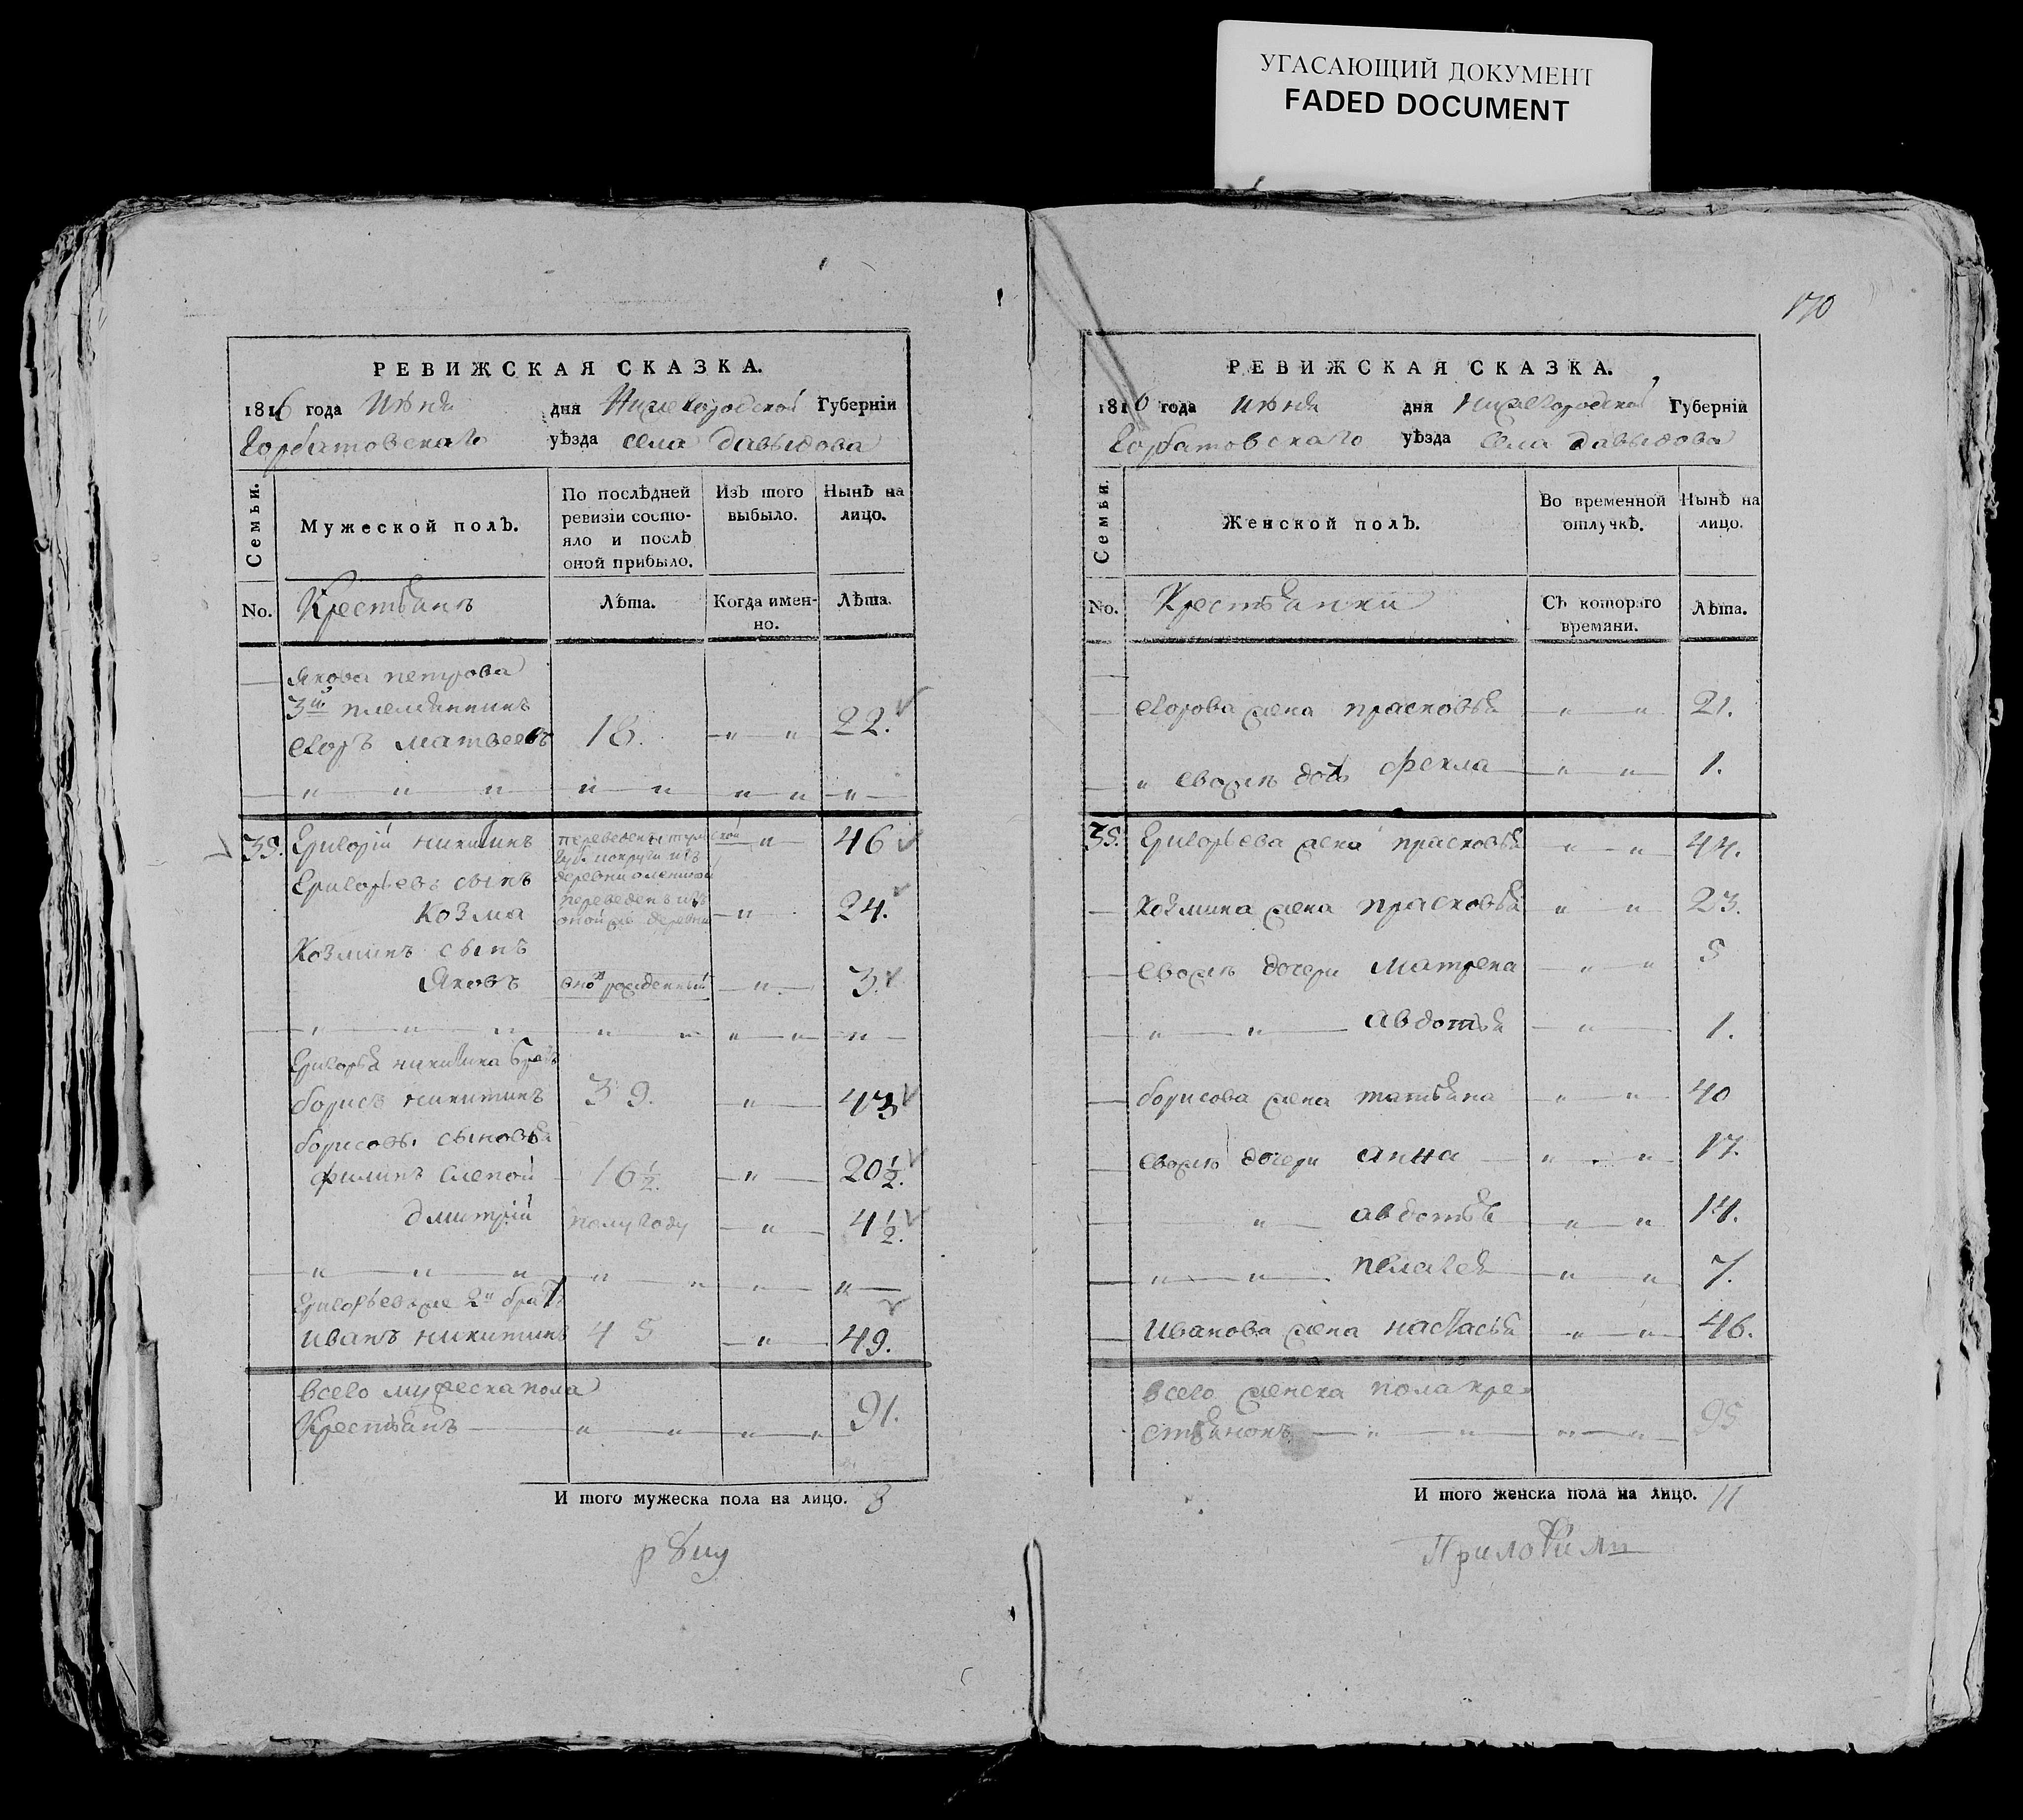 УГАСАЮЩИЙ ДОКУМЕНТ
FADED DOCUMENT
170
РЕВИЖСКАЯ СКАЗКА.
1816 года Июня дня Нижегородской Губерніи
Горбатовскаго уѣзда села давыдова
Семьи.
Мужеской полъ.
По послѣдней ревизіи состояло и послѣ оной прибыло.
Изъ того выбыло.
Нынѣ на лицо.
No.
Крестьянъ
Лѣта.
Когда именно.
Лѣта.
Якова петрова
3й племянникъ
егоръ матвеевъ 18. " " 22.
" " " " " " " "
39. Григорій никитинъ переведенъ 46
Григорьевъ сынъ деревни
козма переведенъ изъ оной же деревни " 24.
Козминъ сынъ
Яковъ рожденный " 3.
" " " " " " " "
Григорья никитина братъ
борисъ никитинъ 39. " 43
борисовы сыновья
филипъ слепой 16 1/2. " 20 1/2.
дмитрій полугоду " 4 1/2.
" " " " " " "
Григорьевже 2й братъ
иванъ никитинъ 45 " 49.
всего мужеска пола
Крестьянъ " " " " 91.
И того мужеска пола на лицо. 8
РЕВИЖСКАЯ СКАЗКА.
1816 года июня дня Нижегородской Губерніи
Горбатовскаго уѣзда села давыдова
Семьи.
Женской полъ.
Во временной отлучкѣ.
Нынѣ на лицо.
No.
Крестьянки
Съ котораго времяни.
Лѣта.
егорова жена прасковья " " 21.
" евожъ дочь фекла " " 1.
39. Григорьева жена прасковья " " 44.
козмина жена прасковья " " 23.
евожъ дочери матрена " " 5
" " авдотья " 1.
борисова жена татьяна " " 40
евожъ дочери анна " " 17.
" авдотья " " 14.
" " пелагея " " 7.
Иванова жена настасья " " 46.
всего женска пола кре-
стьянокъ " " " " 95
И того женска пола на лицо. 11